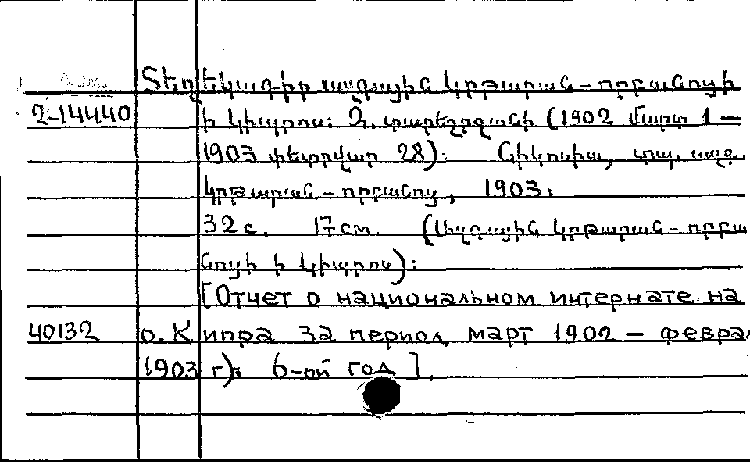 Տեղեկագիր ազգային կրթարան-որբանոցի
2-14440 ի Կիպրոս: Զ. տարեշրջանի (1902 մարտ 1 —
1903 փետրվար 28): Նիկոսիա, տպ. ազգ.
կրթարան-որբանոց, 1903.
32 с. 17 см. (Ազգային կրթարան-որբա
նոցի ի Կիպրոս):
[Отчет о национальном интернате на
40132 о. Кипра за период март 1902 — февра
1903 г). 6-ой год].